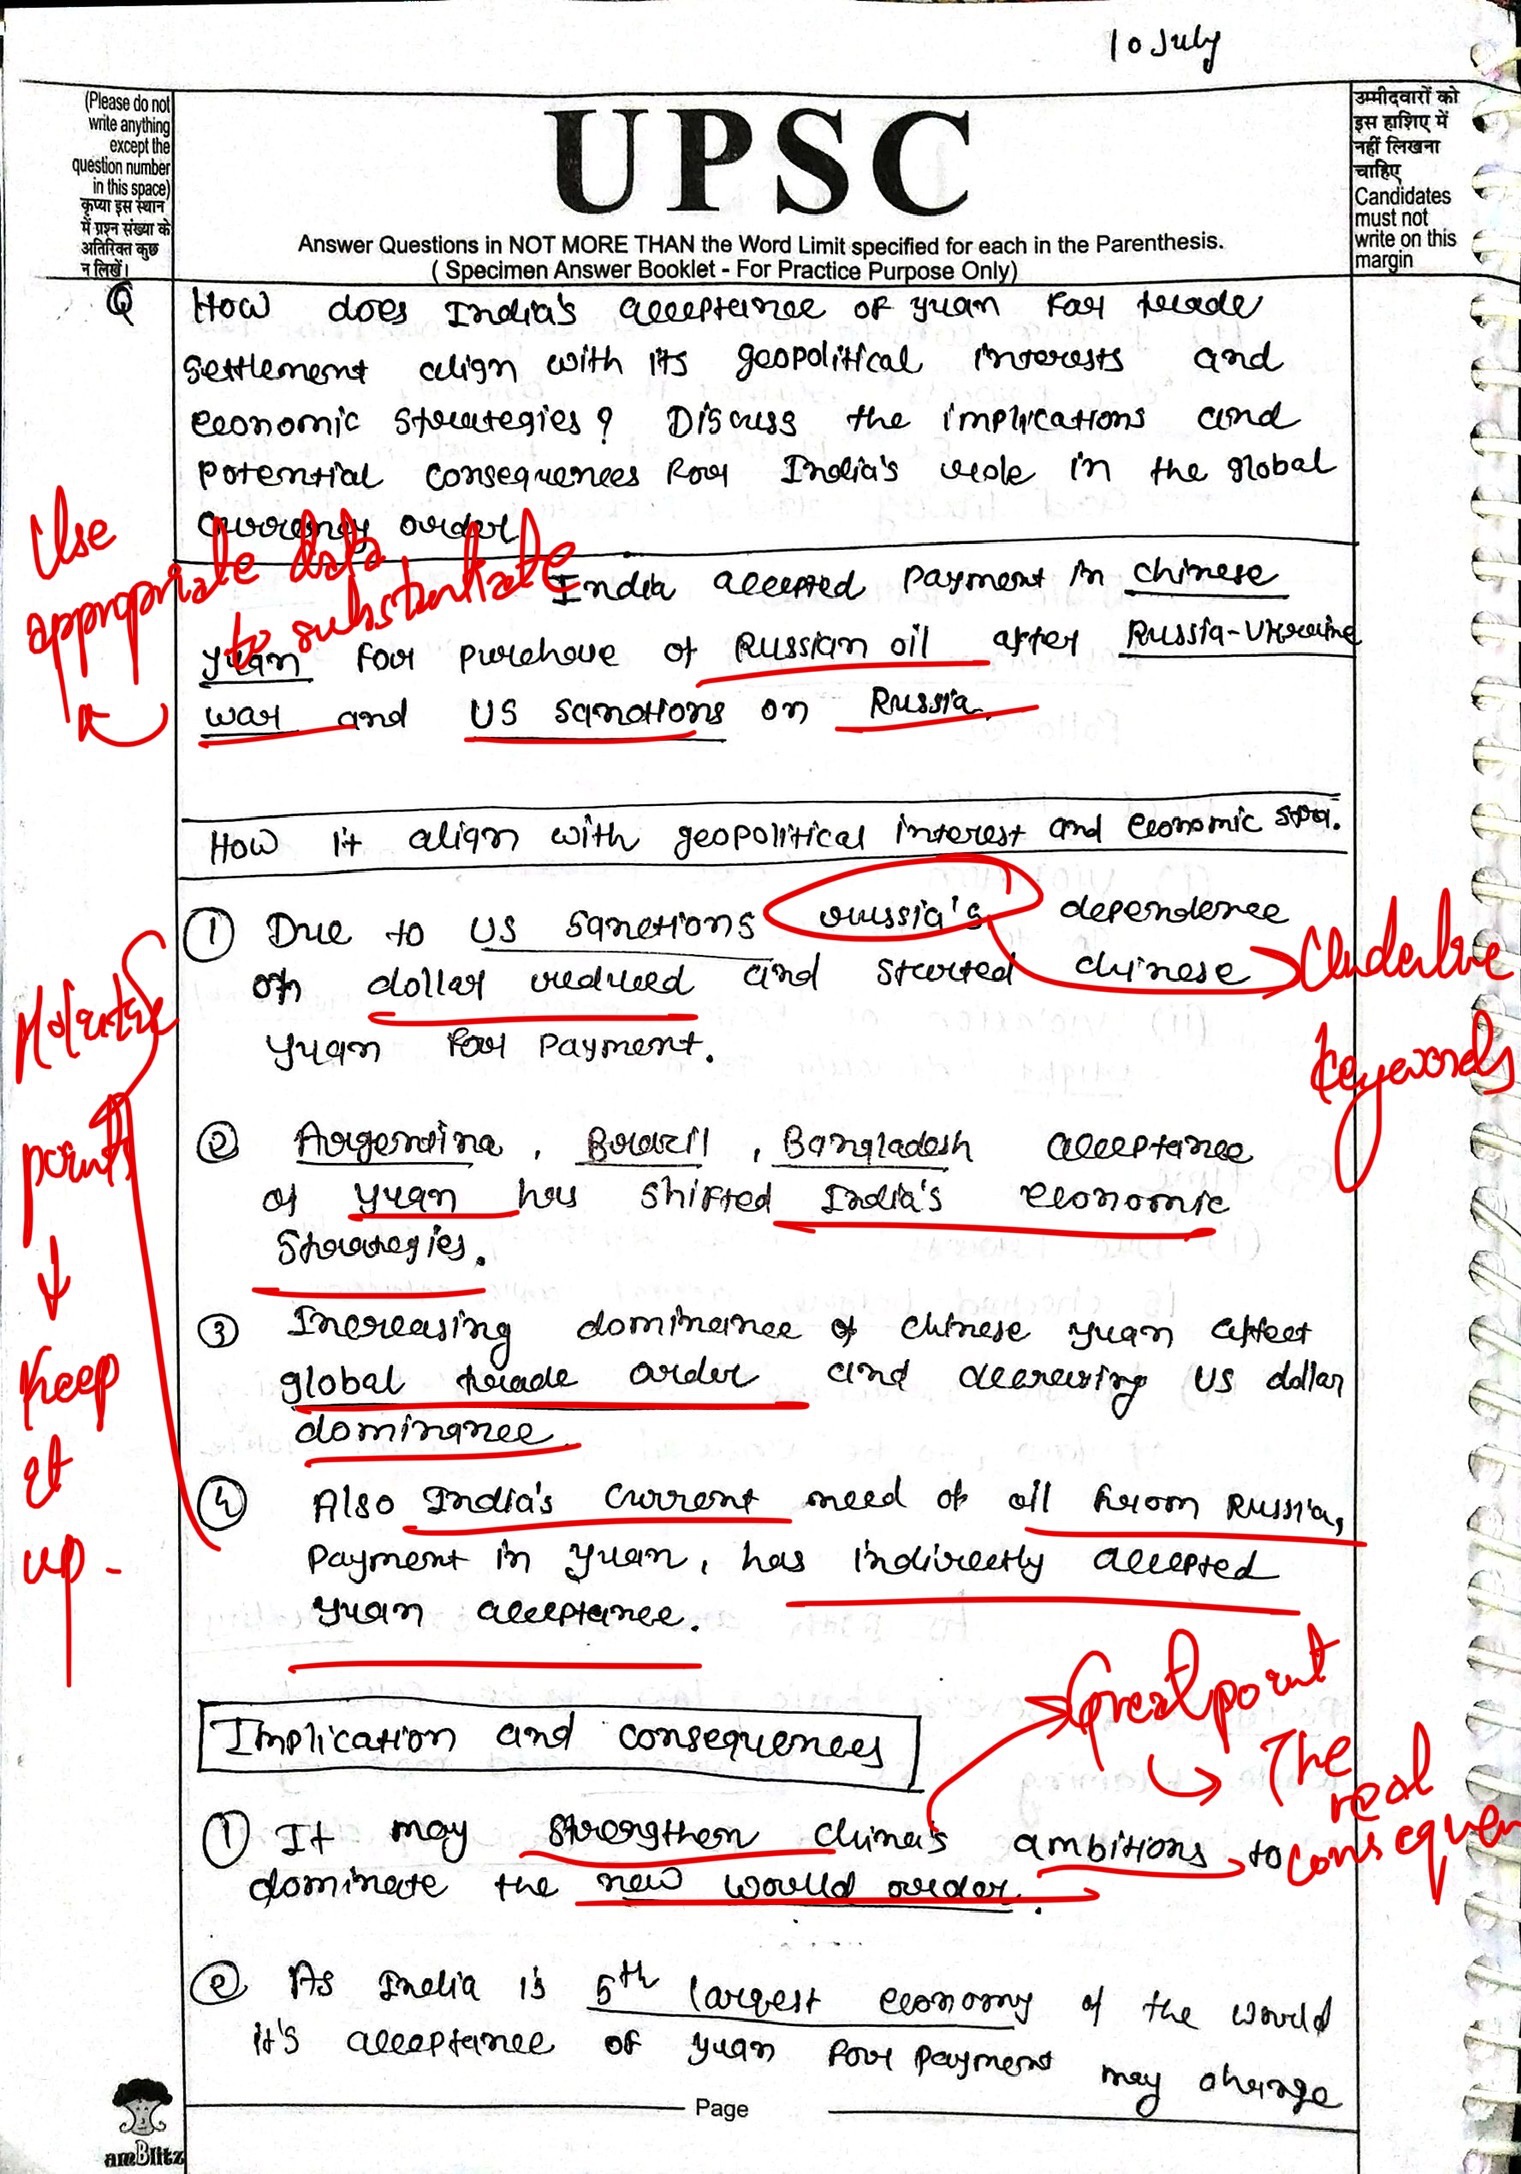 10 July
(Please do not
write anything
except the
question number
in this space)
कृप्या इस स्थान
में प्रश्न संख्या के
अतिरिक्त कुछ
न लिखें।
UPSC
Answer Questions in NOT MORE THAN the Word Limit specified for each in the Parenthesis.
( Specimen Answer Booklet - For Practice Purpose Only)
उम्मीदवारों को
इस हाशिए में
नहीं लिखना
चाहिए
Candidates
must not
write on this
margin
Q How does India's acceptance of yuan for trade
settlement align with its geopolitical interests and
economic strategies? Discuss the implications and
potential consequences for India's role in the global
currency order
Use
appropriate data
to substantiate
India accepted payment in chinese
yuan for purchase of Russian oil after Russia-Ukraine
war and US sanctions on Russia.
How it align with geopolitical interest and economic stra.
① Due to US sanctions russia's dependence
on dollar reduced and started chinese
yuan for payment.
Underline
keywords
points
↓
Keep
it
up -
② Argentina, Brazil, Bangladesh acceptance
of yuan has shifted India's economic
strategies.
③ Increasing dominance of chinese yuan affect
global trade order and decreasing US dollar
dominance.
④ Also India's current need of oil from Russia,
payment in yuan, has indirectly accepted
yuan acceptance.
Implication and consequences
Great point
The
real
consequen
① It may strengthen China's ambitions to
dominate the new world order.
② As India is 5th largest economy of the world
it's acceptance of yuan for payment may change
Page
amBlitz